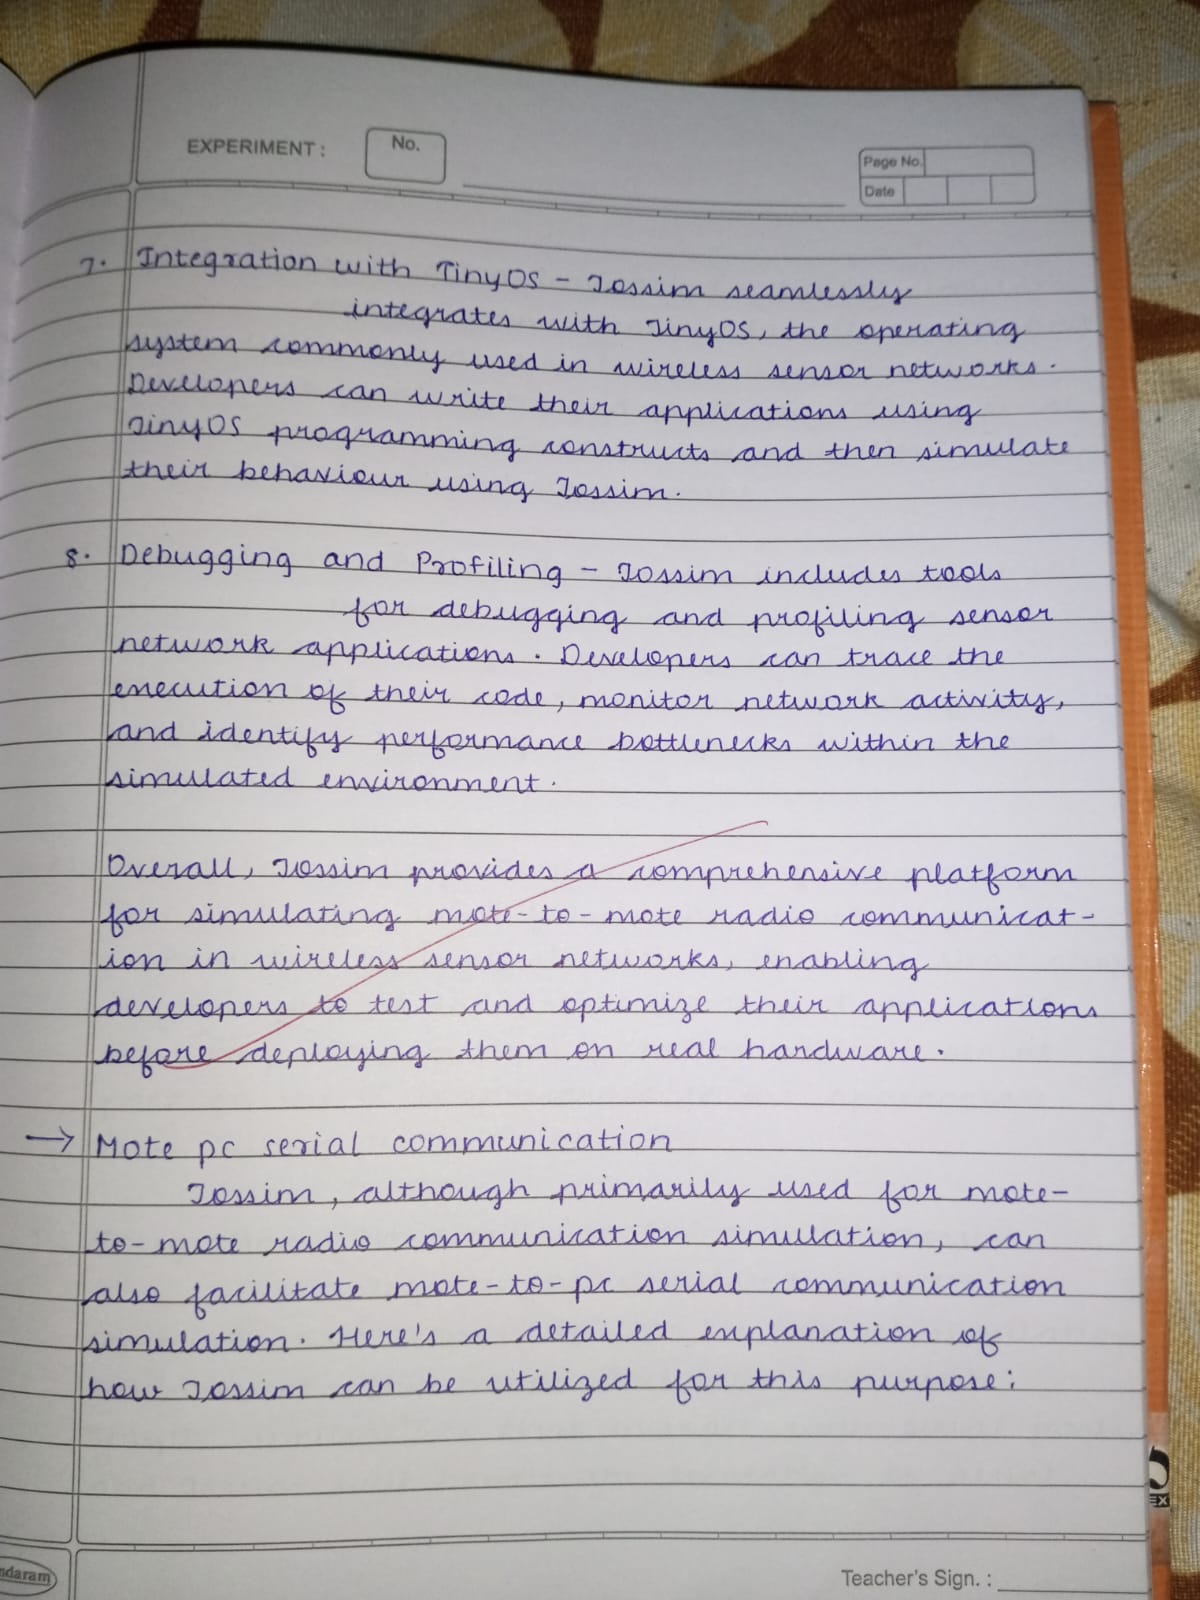 EXPERIMENT :
No.
Page No.
Date
7. Integration with TinyOS - Tossim seamlessly
integrates with TinyOS, the operating
system commonly used in wireless sensor networks.
Developers can write their applications using
TinyOS programming constructs and then simulate
their behaviour using Tossim.
8. Debugging and Profiling - Tossim includes tools
for debugging and profiling sensor
network applications. Developers can trace the
execution of their code, monitor network activity,
and identify performance bottlenecks within the
simulated environment.
Overall, Tossim provides a comprehensive platform
for simulating mote-to-mote radio communicat-
ion in wireless sensor networks, enabling
developers to test and optimize their applications
before deploying them on real hardware.
→ Mote pc serial communication
Tossim, although primarily used for mote-
to-mote radio communication simulation, can
also facilitate mote-to-pc serial communication
simulation. Here's a detailed explanation of
how Tossim can be utilized for this purpose:
ndaram
EX
Teacher's Sign. :